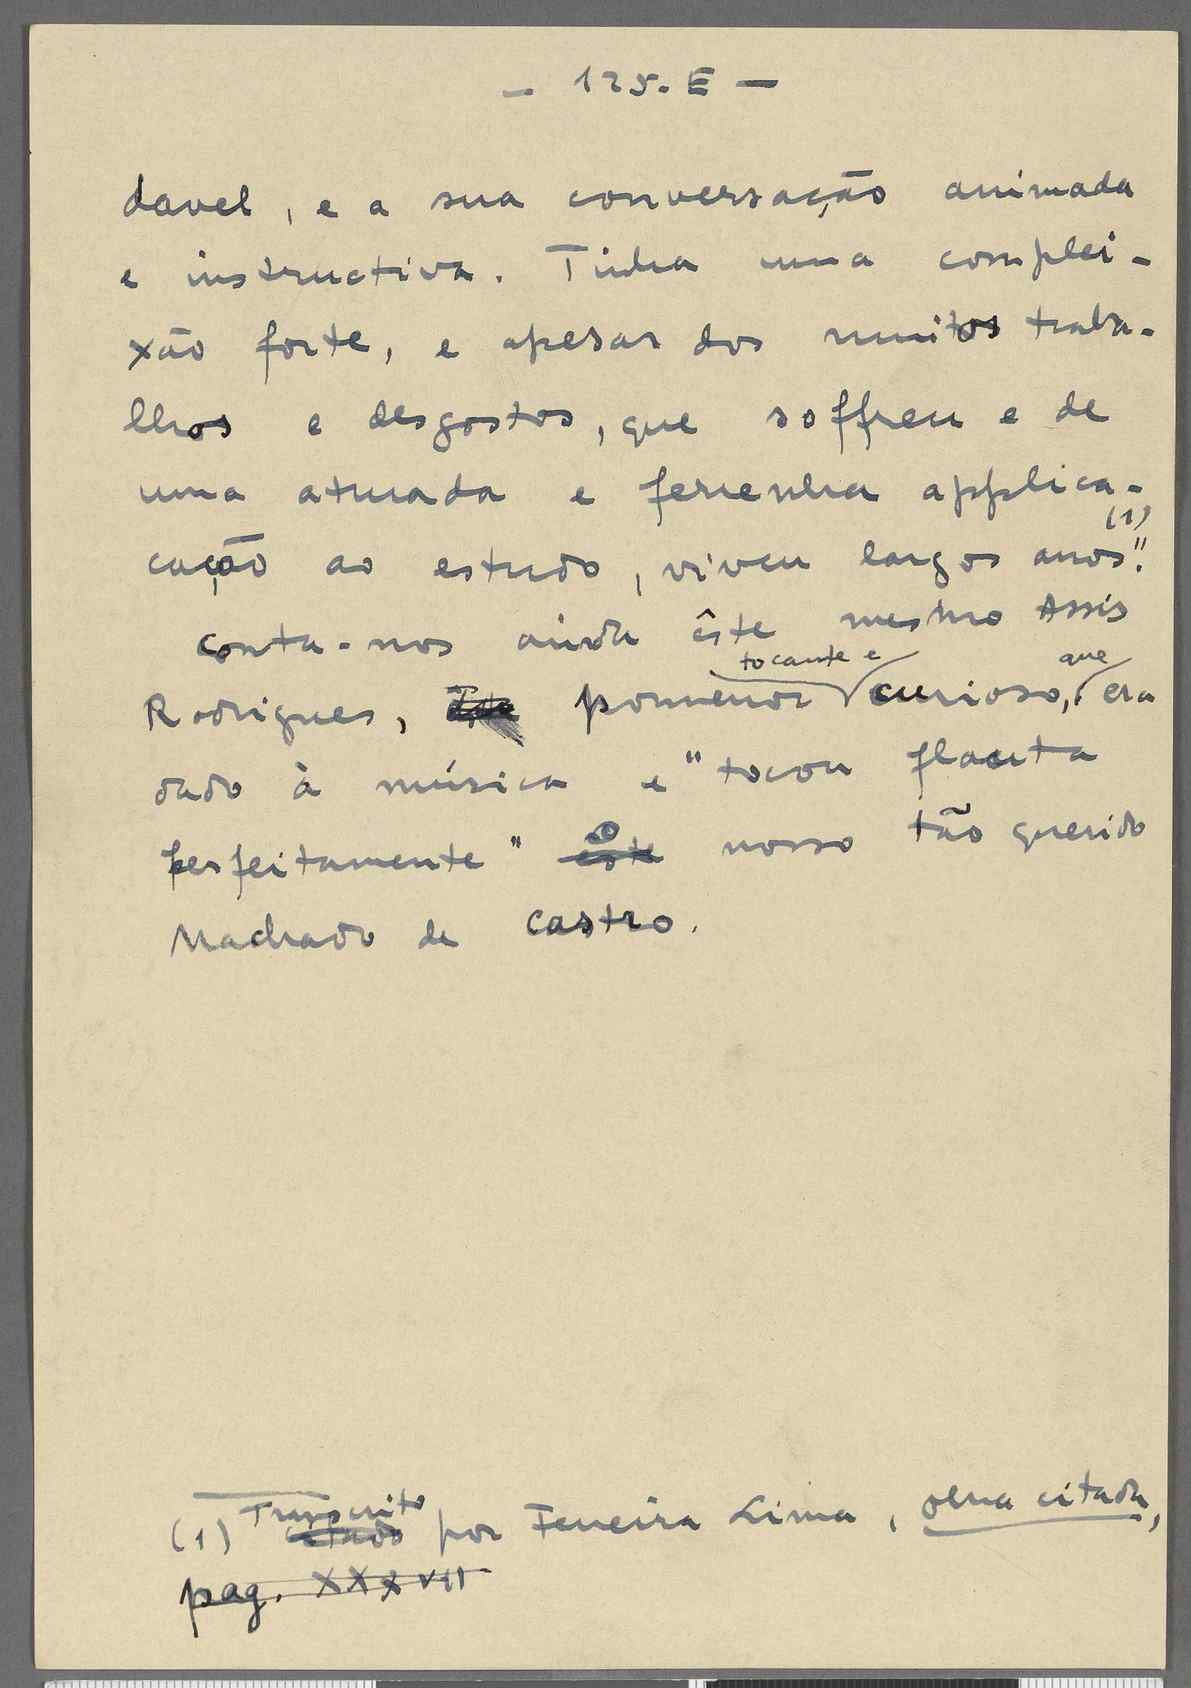 - 125.E -
davel, e a sua conversação animada
e instructiva. Tinha uma complei-
xão forte, e apesar dos muitos traba-
lhos e desgostos, que soffreu e de
uma aturada e ferrenha applica-
(1)
cação ao estudo, viveu largos anos."
Conta-nos ainda êste mesmo Assis
tocante e que
Rodrigues, pormenor curioso, era
dado à música e "tocou flauta
perfeitamente" o nosso tão querido
Machado de Castro.
Transcrito
(1) citado por Ferreira Lima, obra citada,
pag. XXXVII